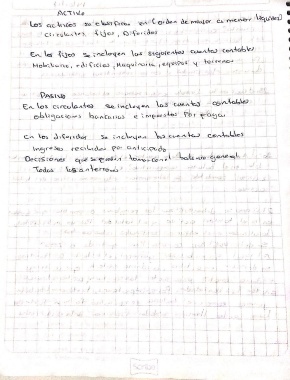 ACTIVO
Los activos se clasifican en (orden de mayor a menor liquidez)
Circulantes, fijos, Diferidos
En los fijos se incluyen las siguientes cuentas contables
Mobiliario, edificios, Maquinaria, equipos y terrenos
PASIVO
En los circulantes se incluyen las cuentas contables
obligaciones bancarias e impuestos por pagar
En los diferidos se incluyen las cuentas contables
Ingresos recibidos por anticipado
Decisiones que se pueden tomar con el balance general
Todas las anteriores